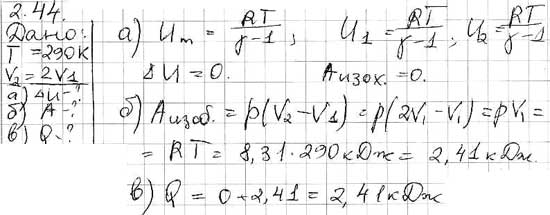 2.44.
Дано:
T = 290К
V₂ = 2V1
а) ΔU-?
б) A-?
в) Q-?
а) Um = RT/γ-1 ; U1 = RT/γ-1 ; U2 = RT/γ-1
ΔU = 0. Aизох. = 0.
б) Aизоб. = p(V2 - V1) = p(2V1 - V1) = pV1 =
= RT = 8,31·290 кДж = 2,41 кДж.
в) Q = 0 + 2,41 = 2,41 кДж